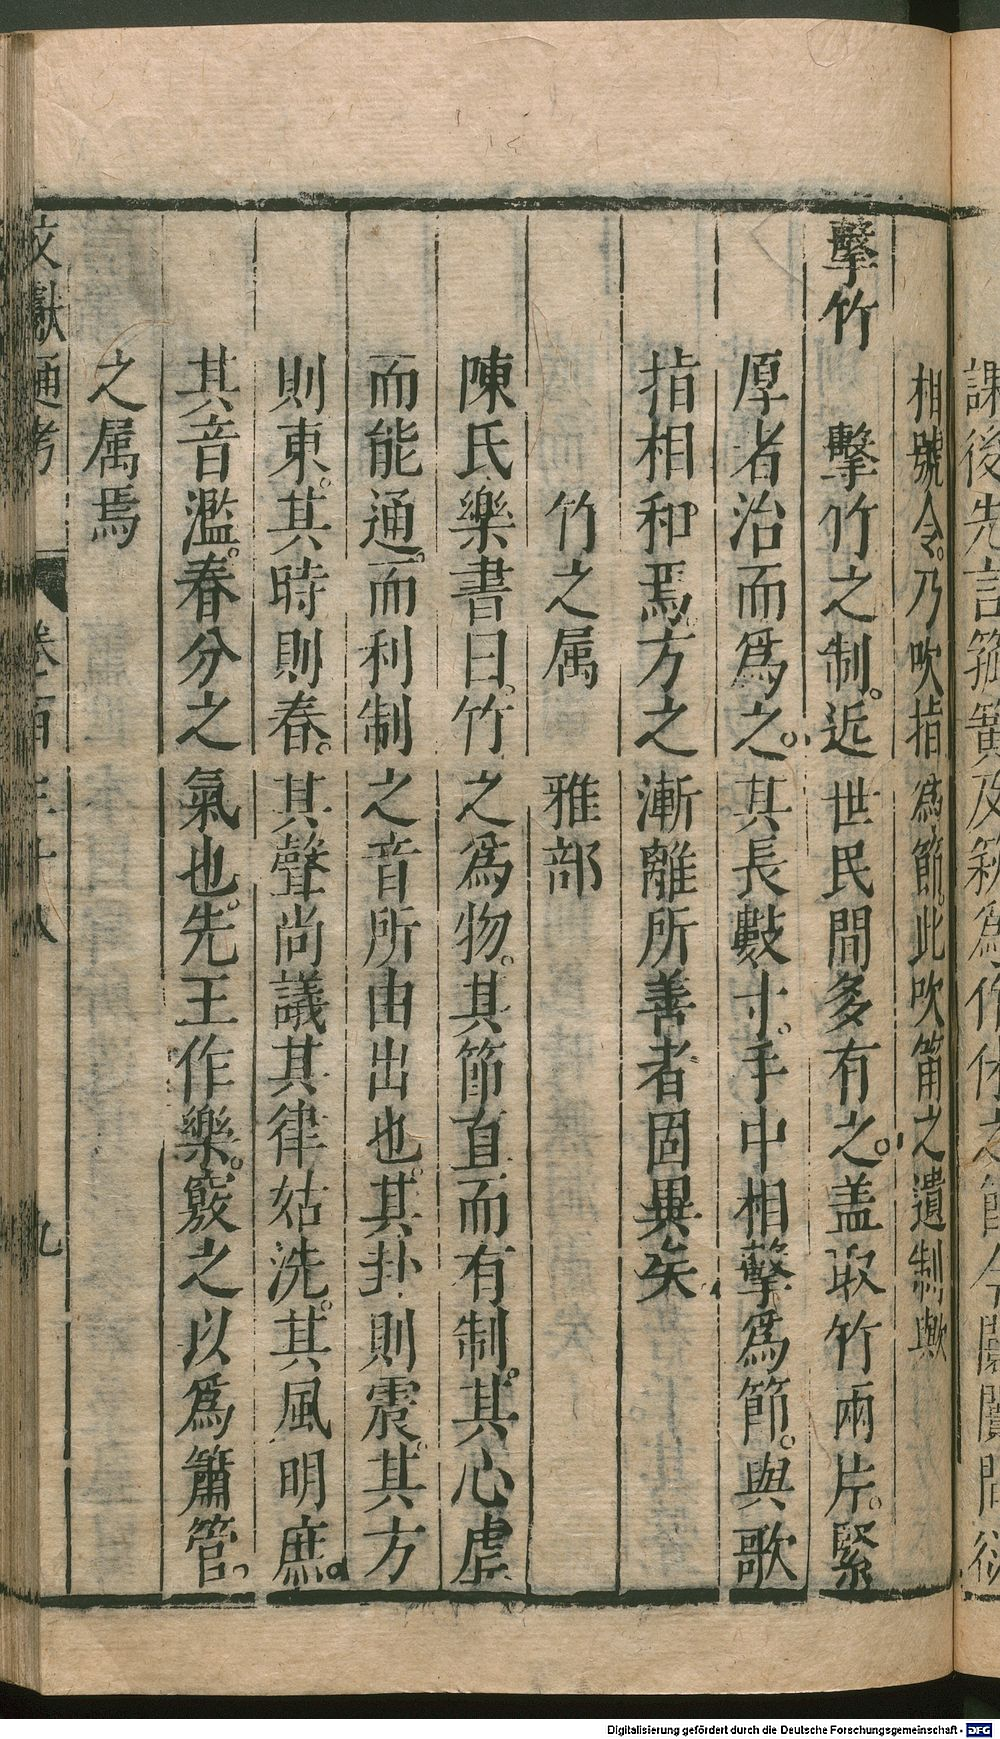 課後先言箛簧及籁爲作休之節今闤闠間衒
相號令。乃吹指爲節。此吹筩之遺制歟
擊竹　擊竹之制。近世民間多有之。盖取竹兩片。緊
厚者治而爲之。其長數寸。手中相擊爲節。與歌
指相和焉。方之漸離所善者固異矣。
竹之属　雅部
陳氏樂書曰。竹之爲物。其節直而有制。其心虚
而能通。而利制之音所由出也。其卦則震。其方
則東。其時則春。其聲尚議其律姑洗。其風明庶。
其音濫。春分之氣也。先王作樂。竅之以爲簫管。
之属焉
文獻通考　卷一百三十八　九
Digitalisierung gefördert durch die Deutsche Forschungsgemeinschaft - DFG